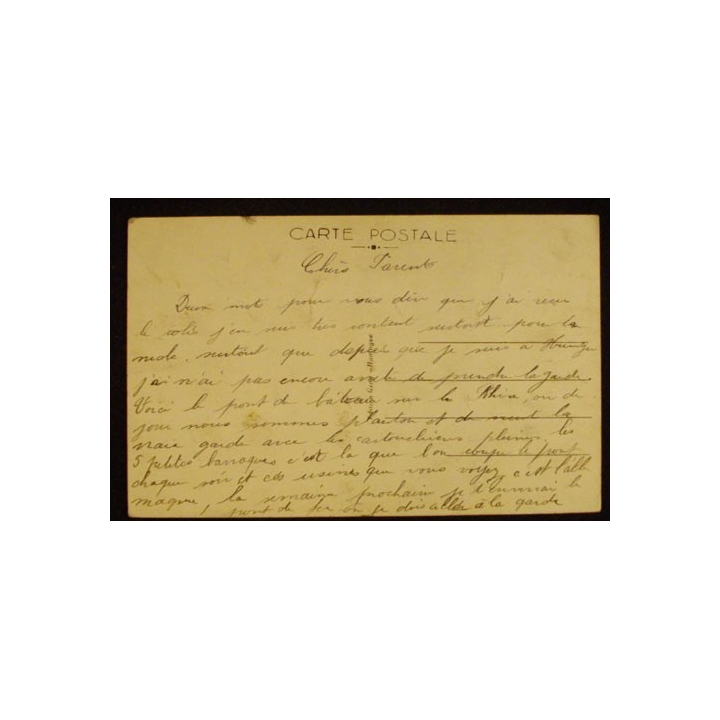 CARTE POSTALE
Chers Parents
Deux mot pour vous dire que j'ai reçu
le colis j'en suis tres content surtout pour la
surtout que depuis que je suis a
j'ai n'ai pas encore arrêté de prendre la garde.
Voici le pont de bâteau sur le Rhin, ou de
jour nous sommes planton et de nuit la
vraie garde avec les cartouchières pleines, les
5 petites barraques c'est la que l'on coupe le pont
chaque soir et ces usines que vous voyez c'est l'alle
magne, la semaine prochain je t'enverrai le
pont de fer ou je dois aller a la garde